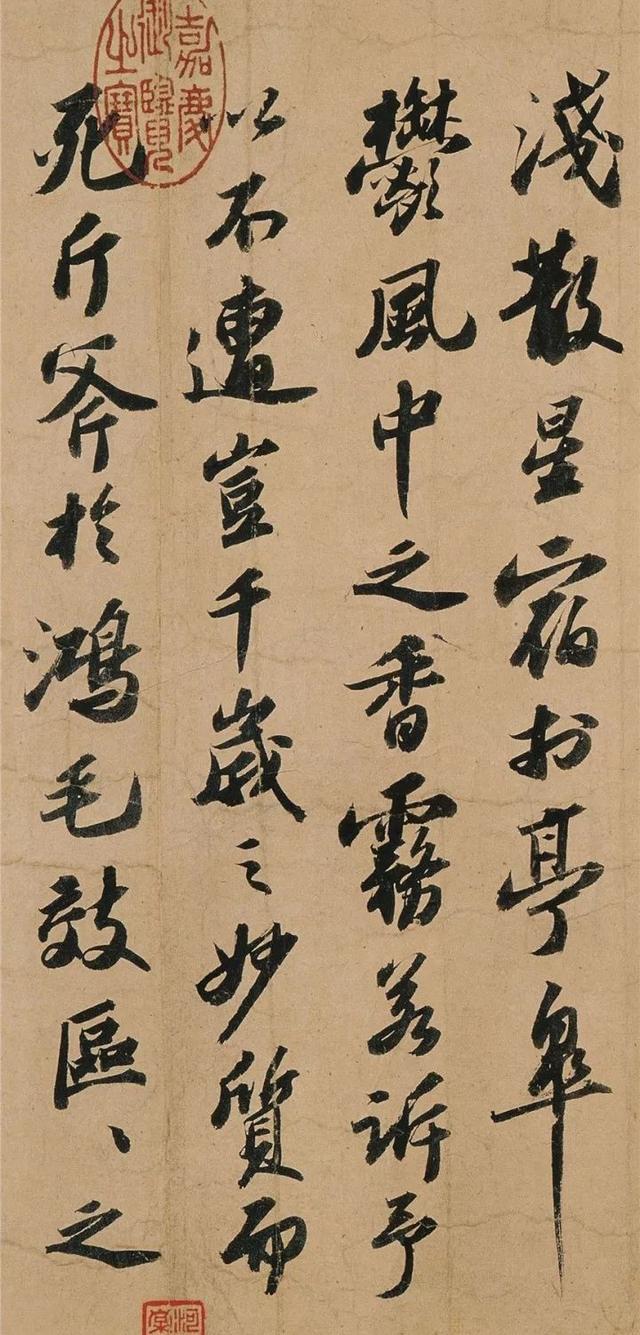 淺散星宿於亭皋
鬱風中之香霧若訴予
以不遭豈千歲之妙質而
死斤斧於鴻毛效區、之
嘉慶御覽之寶